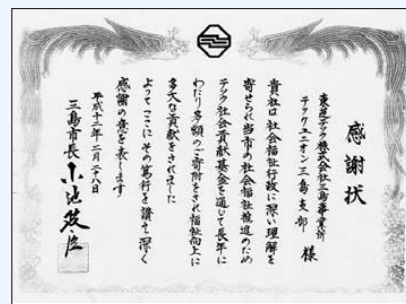 感謝状
東芝テック株式会社三島事業所
テックユニオン三島支部 様
貴社は社会福祉行政に深い理解を
寄せられ当市の社会福祉推進のため
テック社会貢献基金を通じて長年に
わたり多額のご寄附をされ福祉向上に
多大な貢献をされました
よってここにその篤行を讃え深く
感謝の意を表します
平成十二年二月二十八日
三島市長 小池政臣